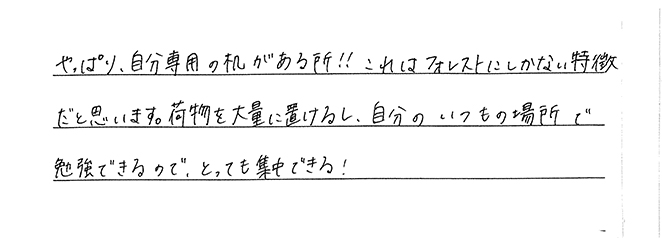 やっぱり、自分専用の机がある所!! これはフォレストにしかない特徴
だと思います。荷物を大量に置けるし、自分のいつもの場所で
勉強できるので、とっても集中できる!